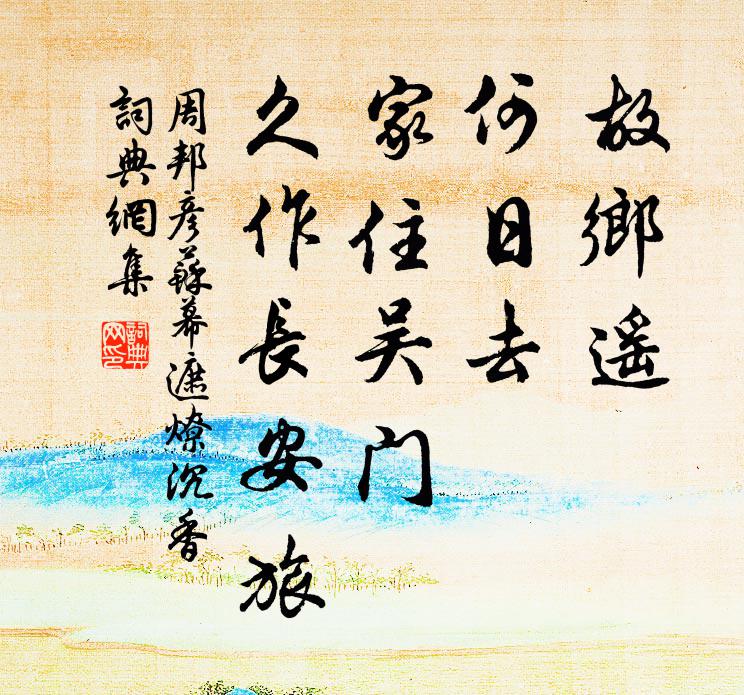 故鄉遥
何日去
家住吴门
久作長安旅
周邦彦蘇幕遮燎沉香
詞典網集
詞典网印